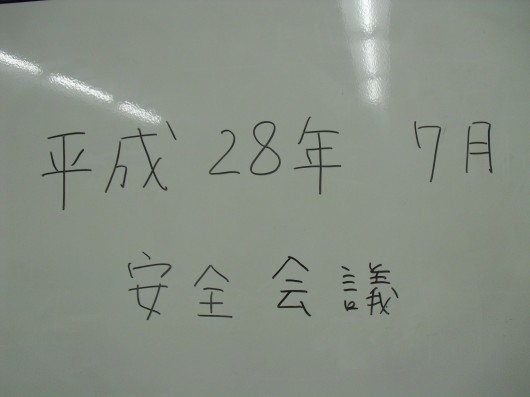 平成28年 7月
安全会議